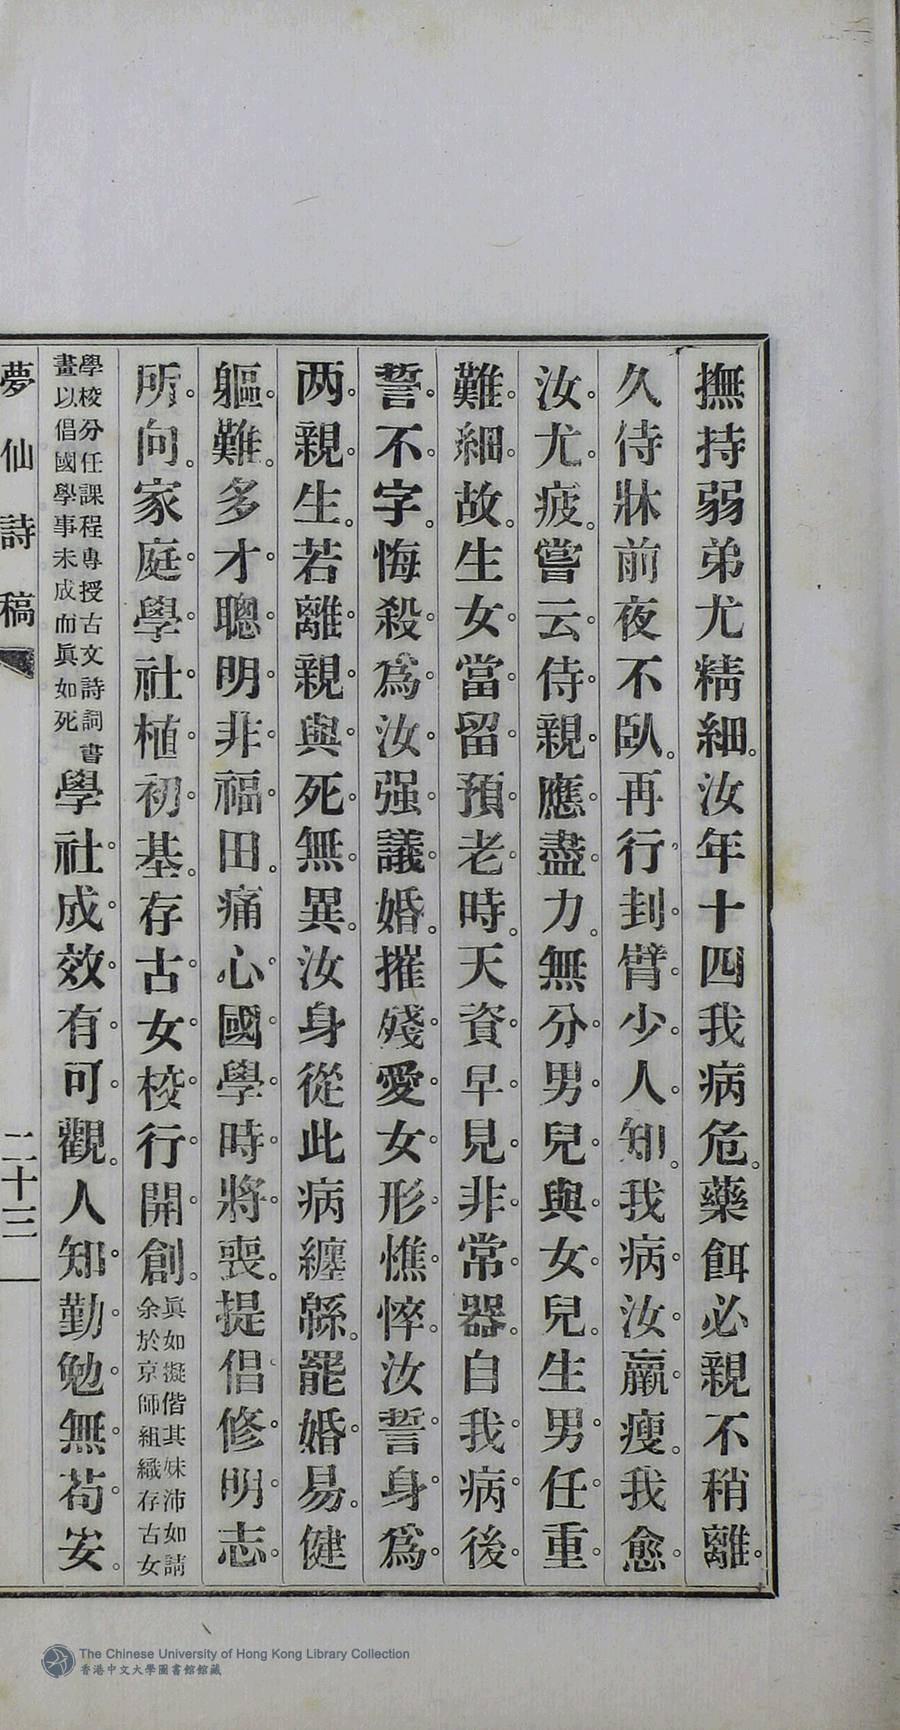 撫持弱弟尤精細。汝年十四我病危。藥餌必親不稍離。
久侍牀前夜不臥。再行刲臂少人知。我病汝羸瘦。我愈
汝尤疲。嘗云侍親應盡力。無分男兒與女兒。生男任重
難細故。生女當留預老時。天資早見非常器。自我病後
誓不字。悔殺為汝强議婚。摧殘愛女形憔悴。汝誓身為
两親生。若離親與死無異。汝身從此病纏緜。罷婚易健
軀難。多才聰明非福田。痛心國學時將喪。提倡修明志
所向。家庭學社植初基。存古女校行開創。眞如擬偕其妹沛如請
余於京師組織存古女
學校分任課程專授古文詩詞書
畫以倡國學事未成而眞如死學社成效有可觀。人知勤勉無苟安。
夢仙詩稿
二十三
The Chinese University of Hong Kong Library Collection
香港中文大學圖書館館藏